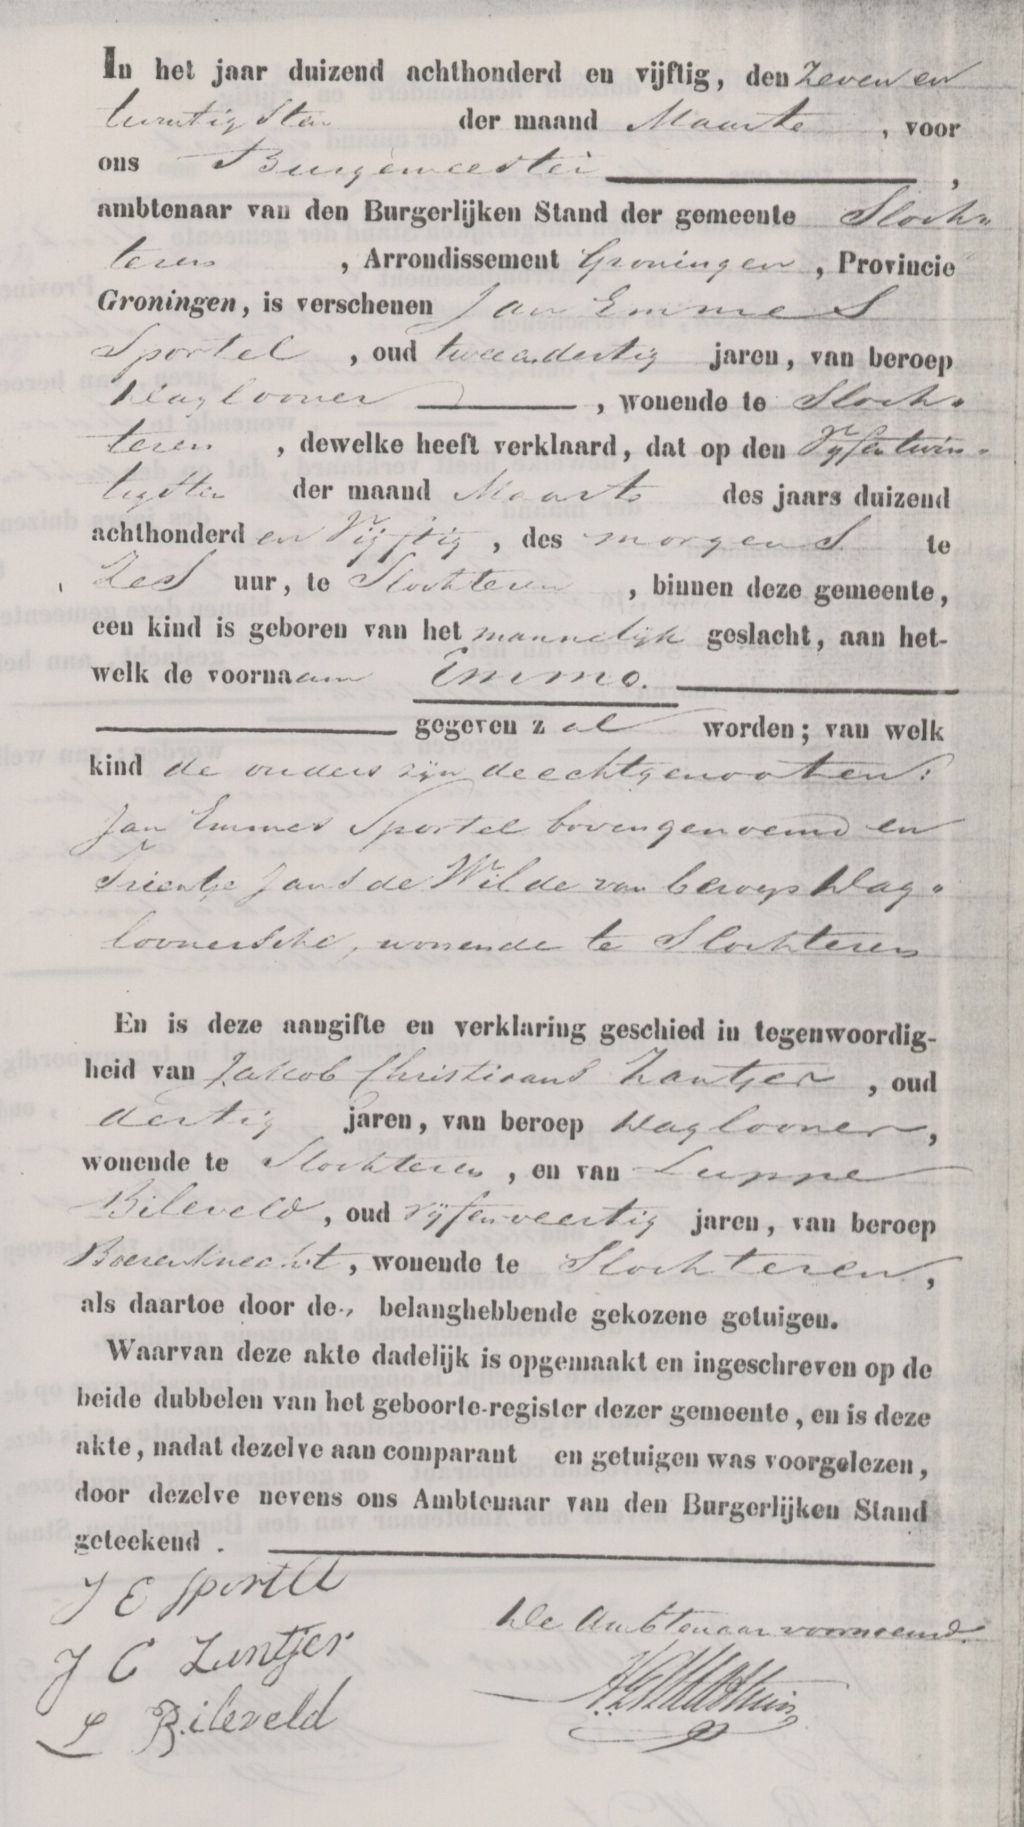 In het jaar duizend achthonderd en vijftig, den Zeven en
twintigsten der maand Maarte, voor
ons Burgemeester,
ambtenaar van den Burgerlijken Stand der gemeente Sloch„
teren, Arrondissement Groningen, Provincie
Groningen, is verschenen Jan Emmes
Sportel, oud tweeendertig jaren, van beroep
Daglooner, wonende te Sloch„
teren, dewelke heeft verklaard, dat op den Vijfentwin„
tigsten der maand Maarte des jaars duizend
achthonderd en Vijftig, des morgens te
Zes uur, te Slochteren, binnen deze gemeente,
een kind is geboren van het mannelijk geslacht, aan het-
welk de voornaam Emmo.
gegeven zal worden; van welk
kind de ouders zijn de echtgenooten:
Jan Emmes Sportel bovengenoemd en
Trientje Jans de Wilde van beroep Dag„
loonersche, wonende te Slochteren
En is deze aangifte en verklaring geschied in tegenwoordig-
heid van Jakob Christiaans Zantjer, oud
dertig jaren, van beroep Daglooner,
wonende te Slochteren, en van Luppe
Bileveld, oud vijfenveertig jaren, van beroep
Boerenknecht, wonende te Slochteren,
als daartoe door de belanghebbende gekozene getuigen.
Waarvan deze akte dadelijk is opgemaakt en ingeschreven op de
beide dubbelen van het geboorte-register dezer gemeente, en is deze
akte, nadat dezelve aan comparant en getuigen was voorgelezen,
door dezelve nevens ons Ambtenaar van den Burgerlijken Stand
geteekend.
J E Sportel
De Ambtenaar voornoemd.
J C Zantjer
L Bileveld